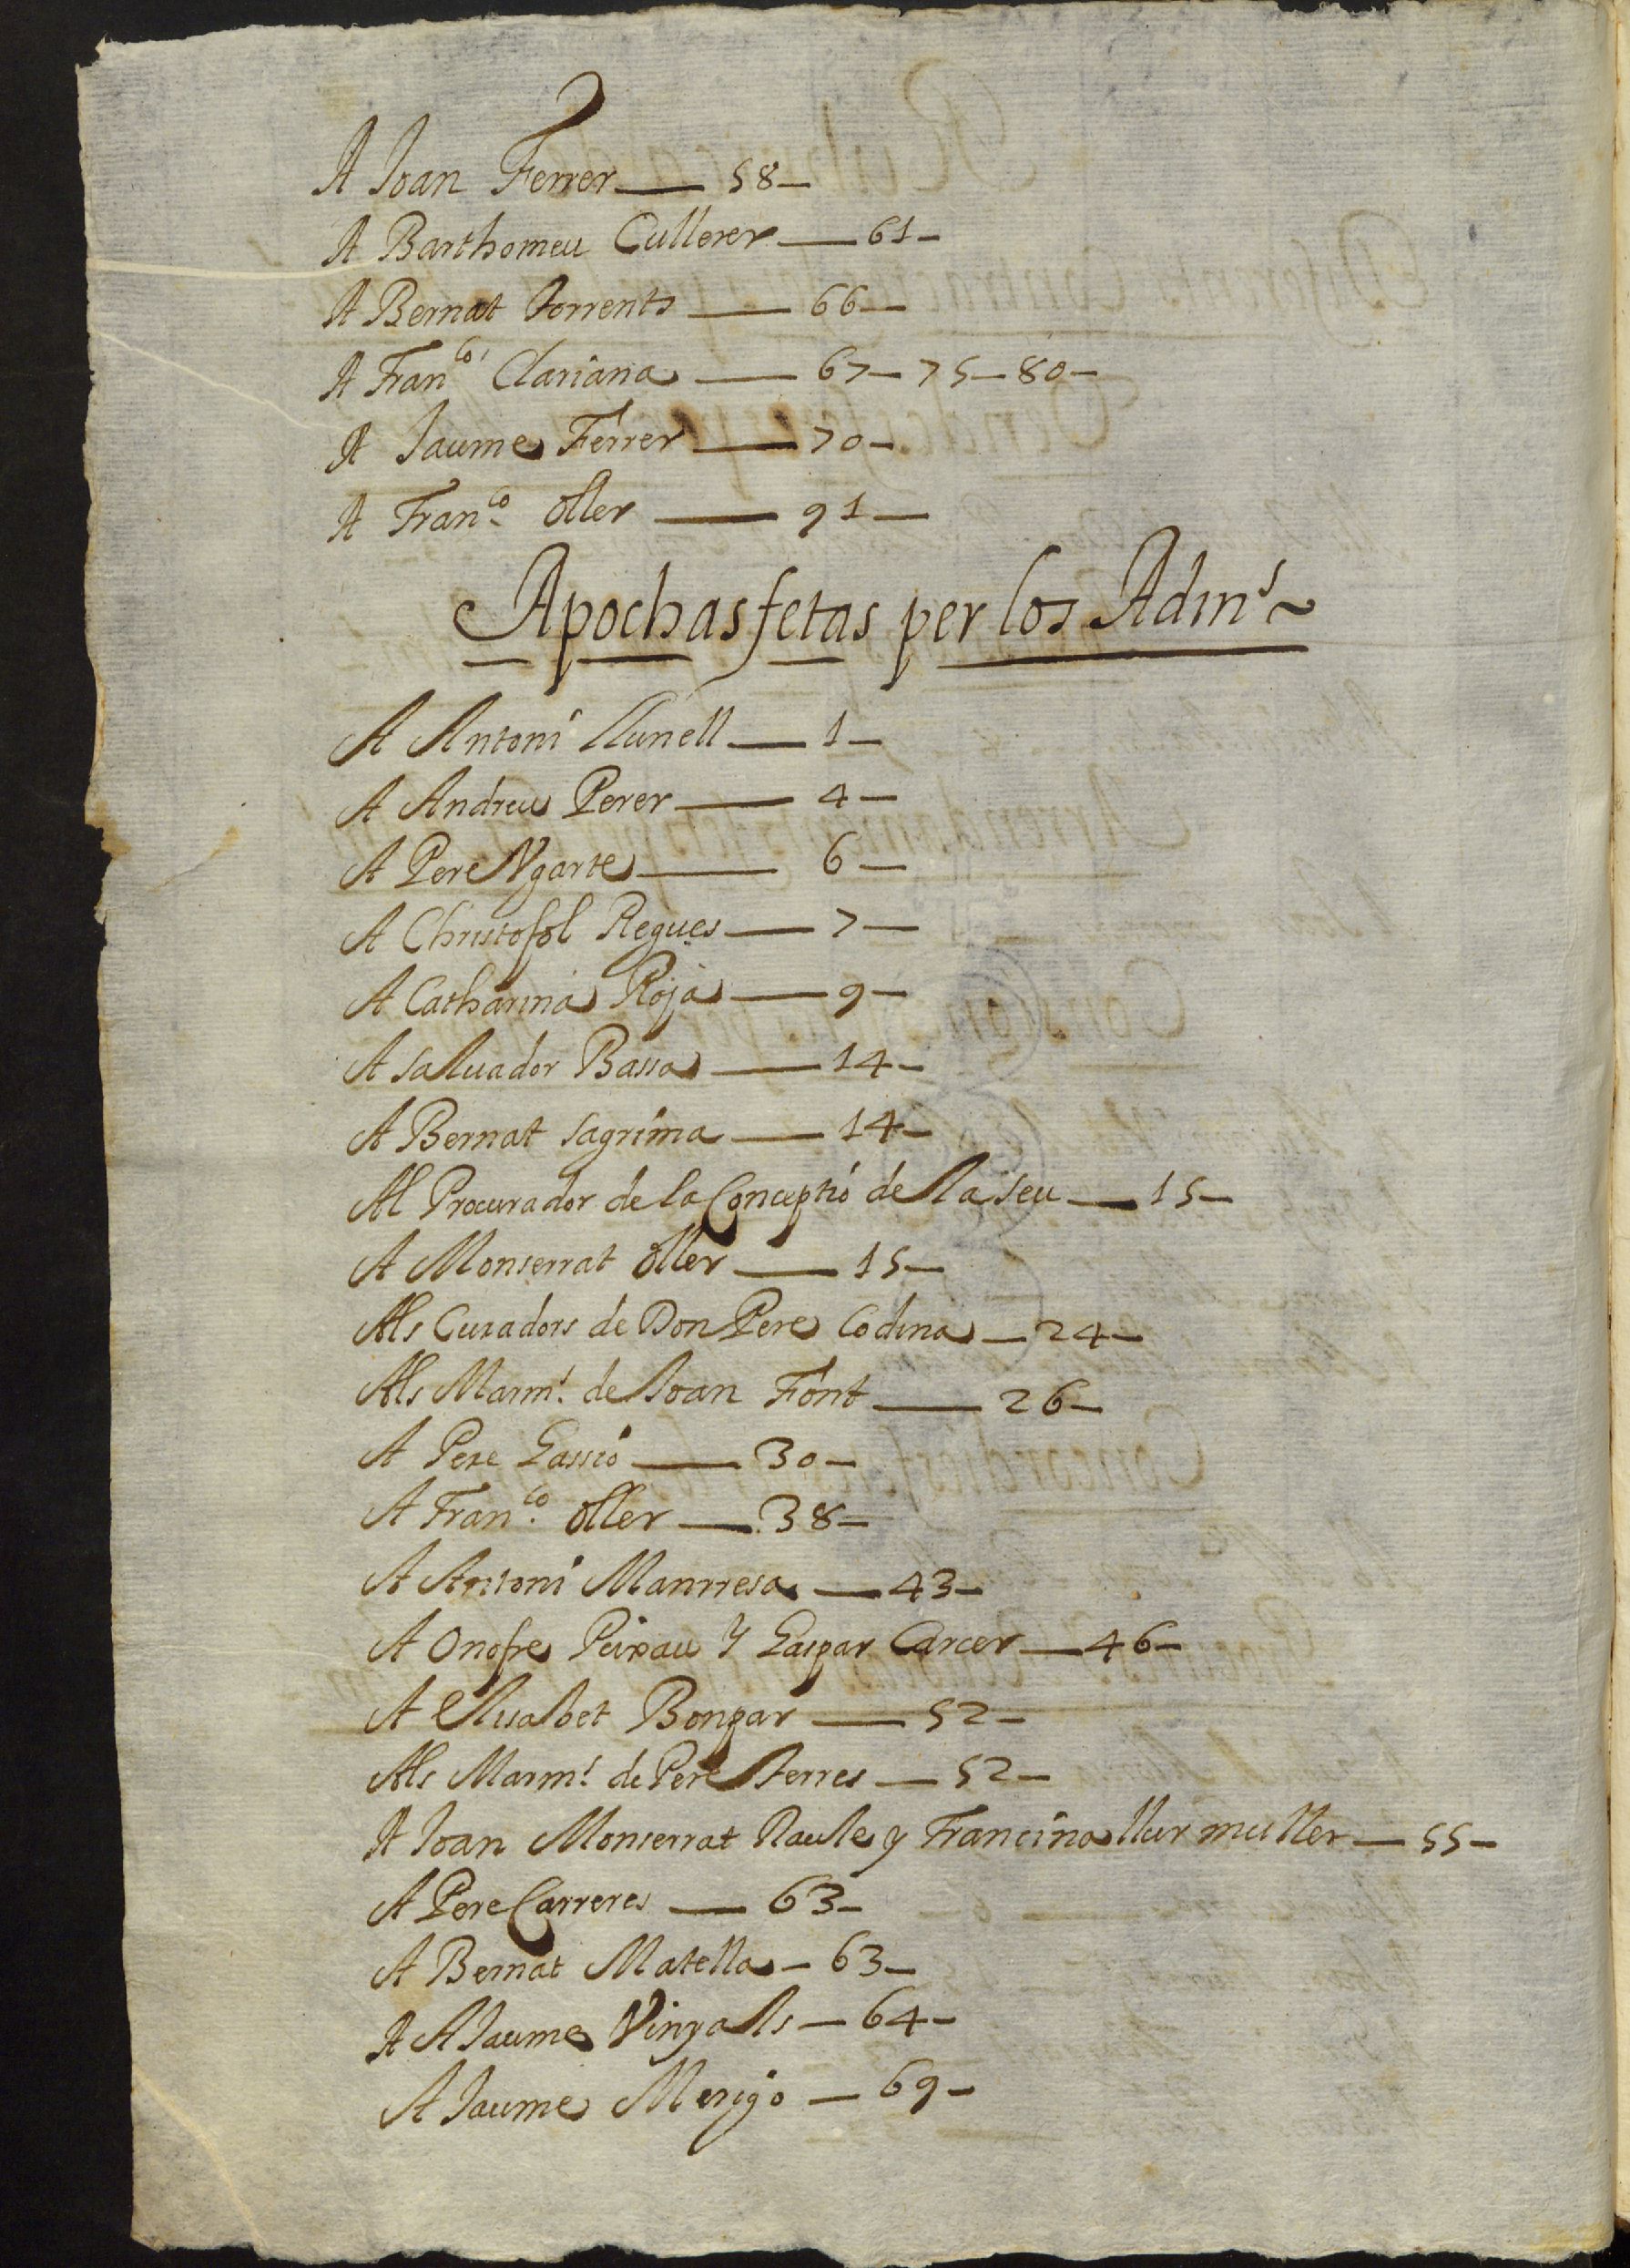 A Joan Ferrer — 58 —
A Barthomeu Cullerer — 61 —
A Bernat Torrents — 66 —
A Fran.co Clariana — 67 — 75 — 80 —
A Jaume Ferrer — 70 —
A Fran.co Oller — 91 —
Apochas fetas per los Adm.s ~
A Antoni Llunell — 1 —
A Andreu Perer — 4 —
A Pere Ugarte — 6 —
A Christofol Regues — 7 —
A Catharina Roja — 9 —
A Saluador Bassa — 14 —
A Bernat Sagrima — 14 —
Al Procurador de la Conceptió de la Seu — 15 —
A Monserrat Oller — 15 —
Als Curadors de Don Pere Codina — 24 —
Als Marm.s de Joan Font — 26 —
A Pere Gassió — 30 —
A Fran.co Oller — 38 —
A Antoni Manrresa — 43 —
A Onofre Peixau y Gaspar Carcer — 46 —
A Elisabet Bonpar — 52 —
Als Marm.s de Pere Terres — 52 —
A Joan Monserrat Raule y Francina llur muller — 55 —
A Pere Carreres — 63 —
A Bernat Matella — 63 —
A A Jaume Vinyals — 64 —
A Jaume Merigo — 69 —